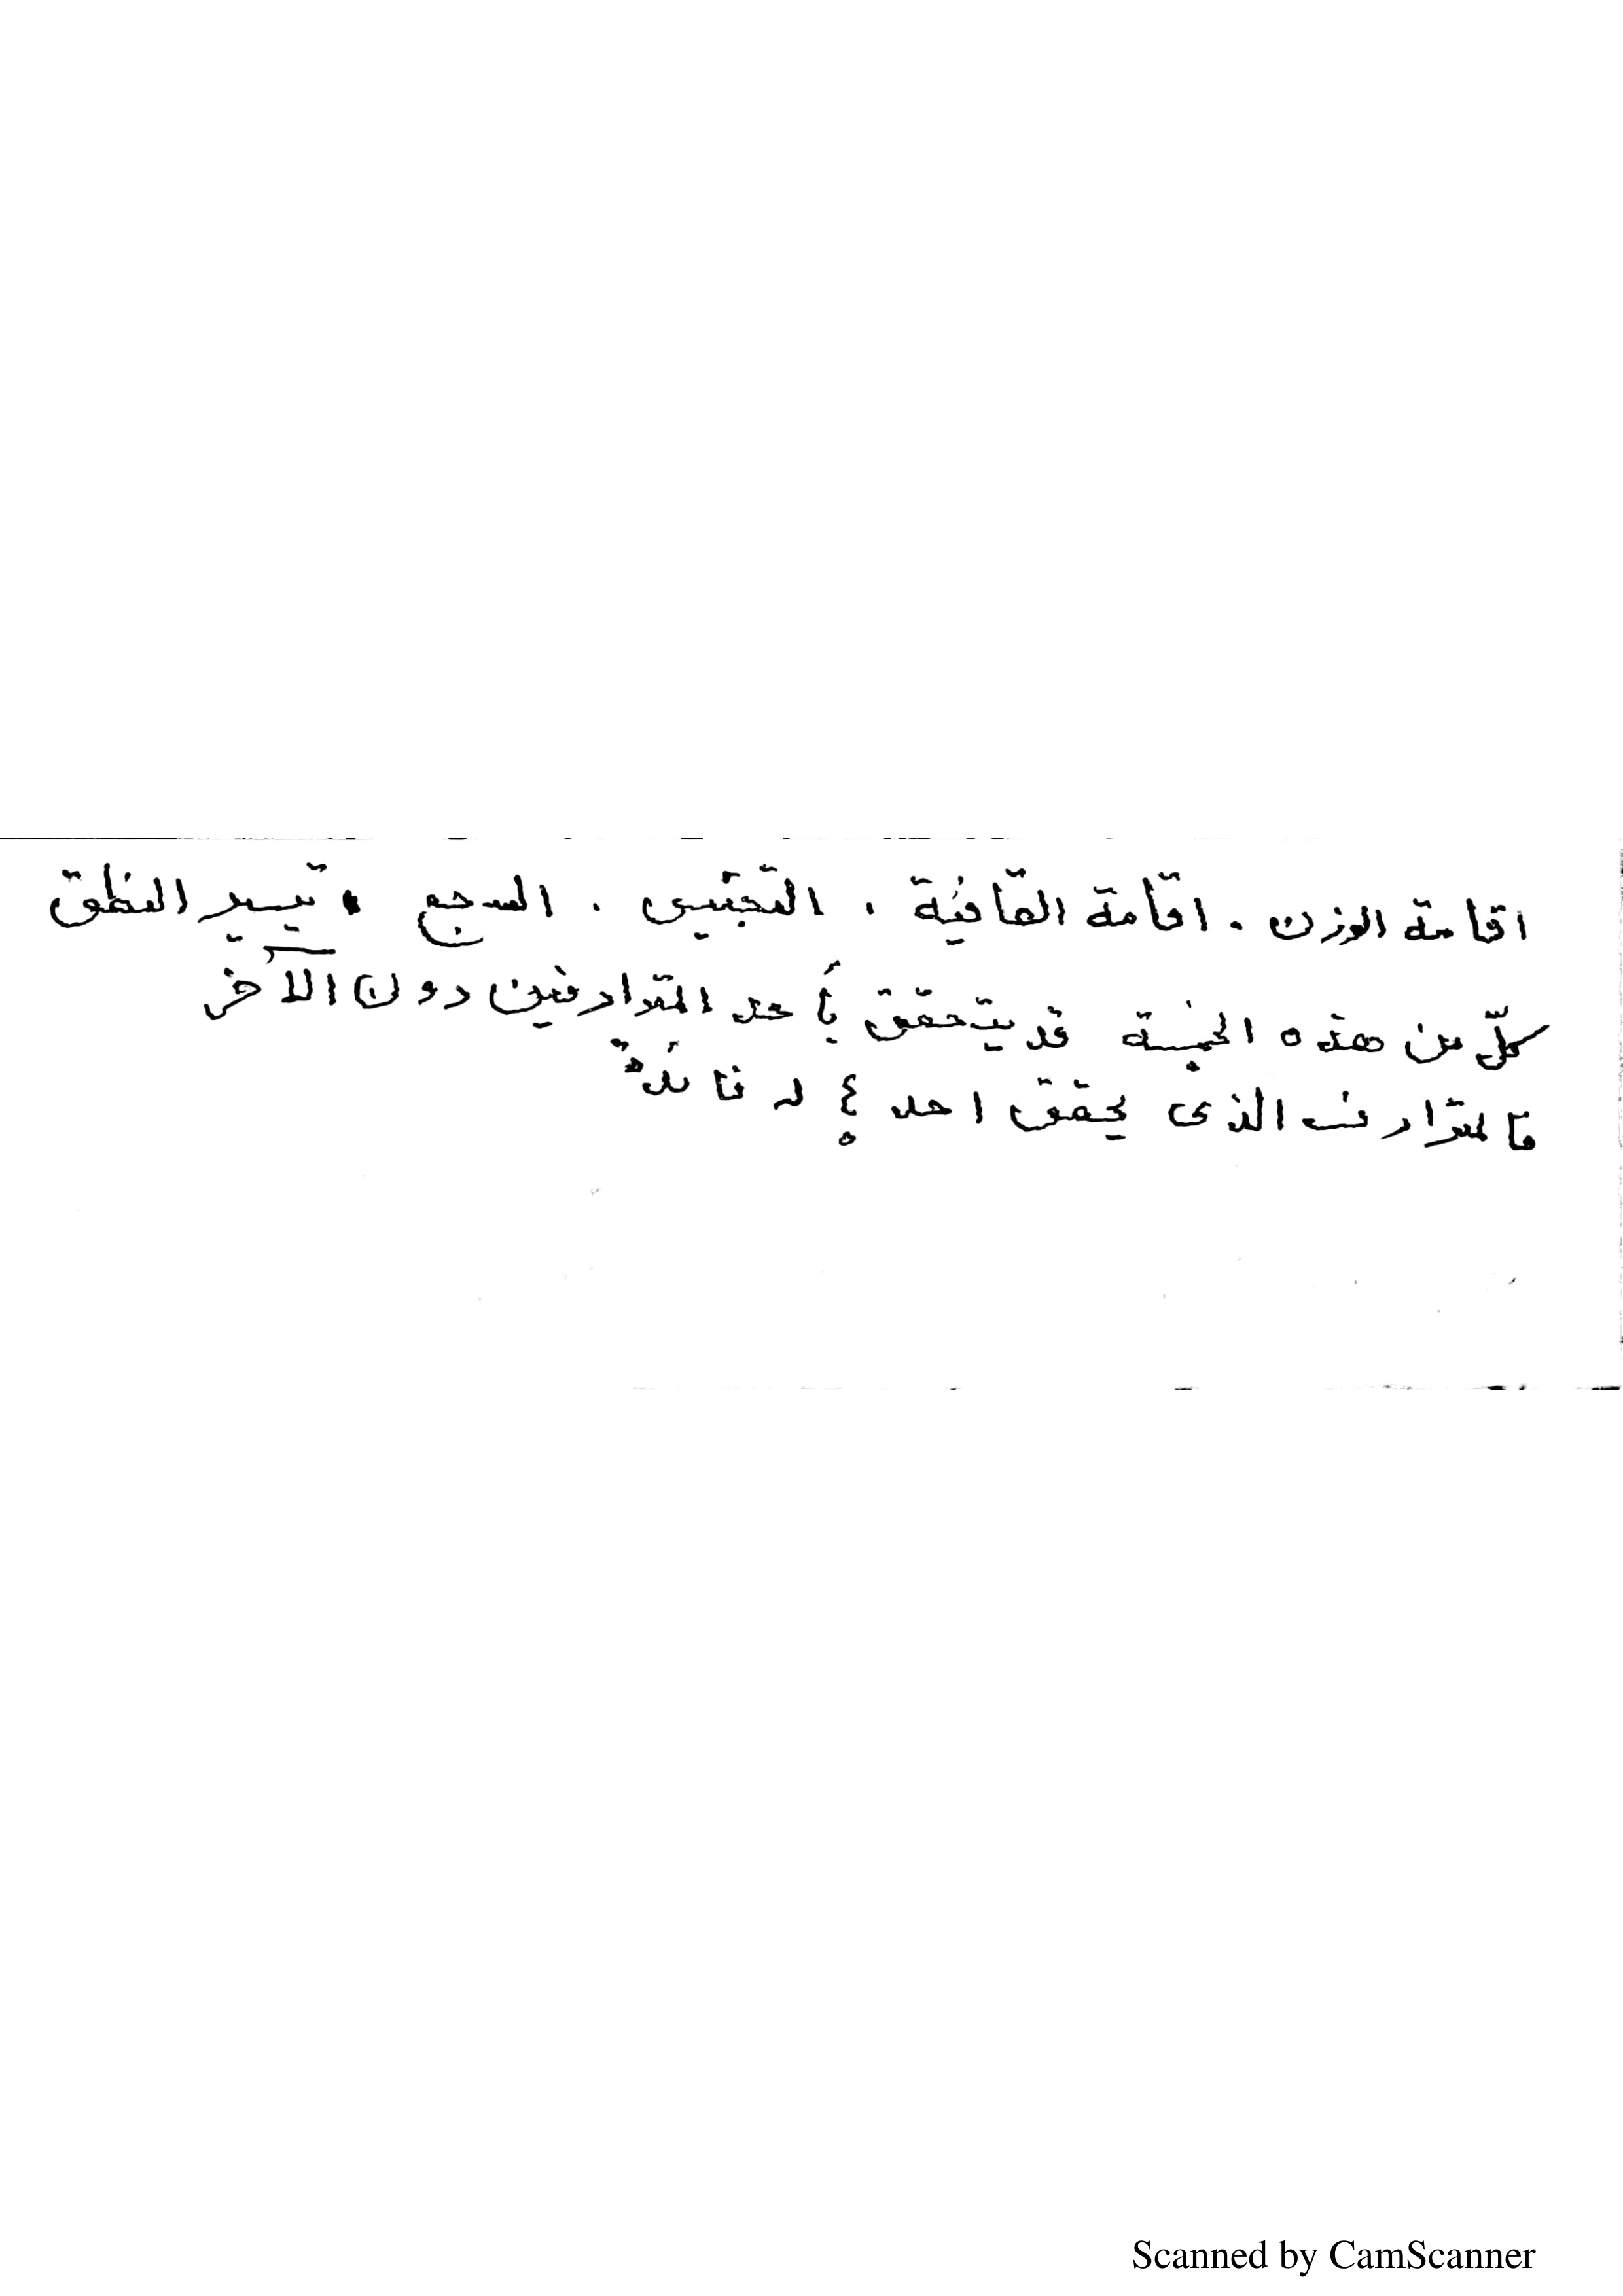 اقامة الوزن . اقامة القافية ، التجنيس . السجع و تيسير النطق
كلّ من هذه الخمسة قد يتحقق بأحد المترادفين دون الآخر
فالمترادف الذى يحقق احد له فائدة
Scanned by CamScanner